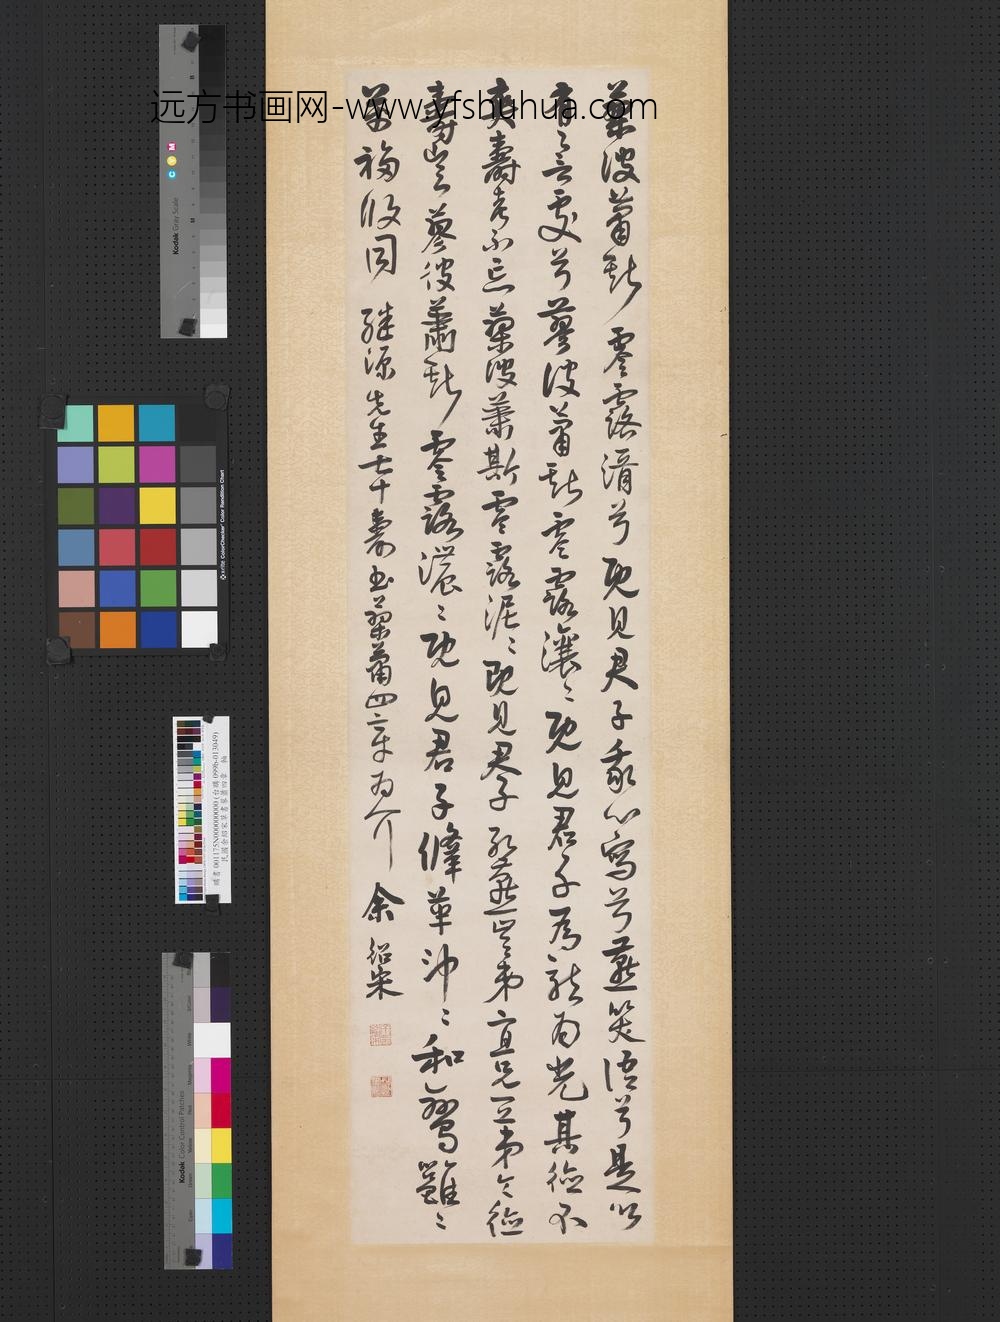 远方书画网-www.yfshuhua.com
蓼彼蕭斯零露湑兮既見君子我心寫兮燕笑語兮是以
有譽處兮蓼彼蕭斯零露瀼〻既見君子為龍為光其德不
爽壽考不忘蓼彼蕭斯零露泥〻既見君子孔燕豈弟宜兄宜弟令德
壽豈蓼彼蕭斯零露濃〻既見君子鞗革沖〻和鸞雝〻
萬福攸同 繼源先生七十壽書蓼蕭四章為介 余紹宋
Kodak Gray Scale
C Y M
x-rite ColorChecker Color Rendition Chart
民國余紹宋草書蓼蕭四章 軸
Kodak Color Control Patches